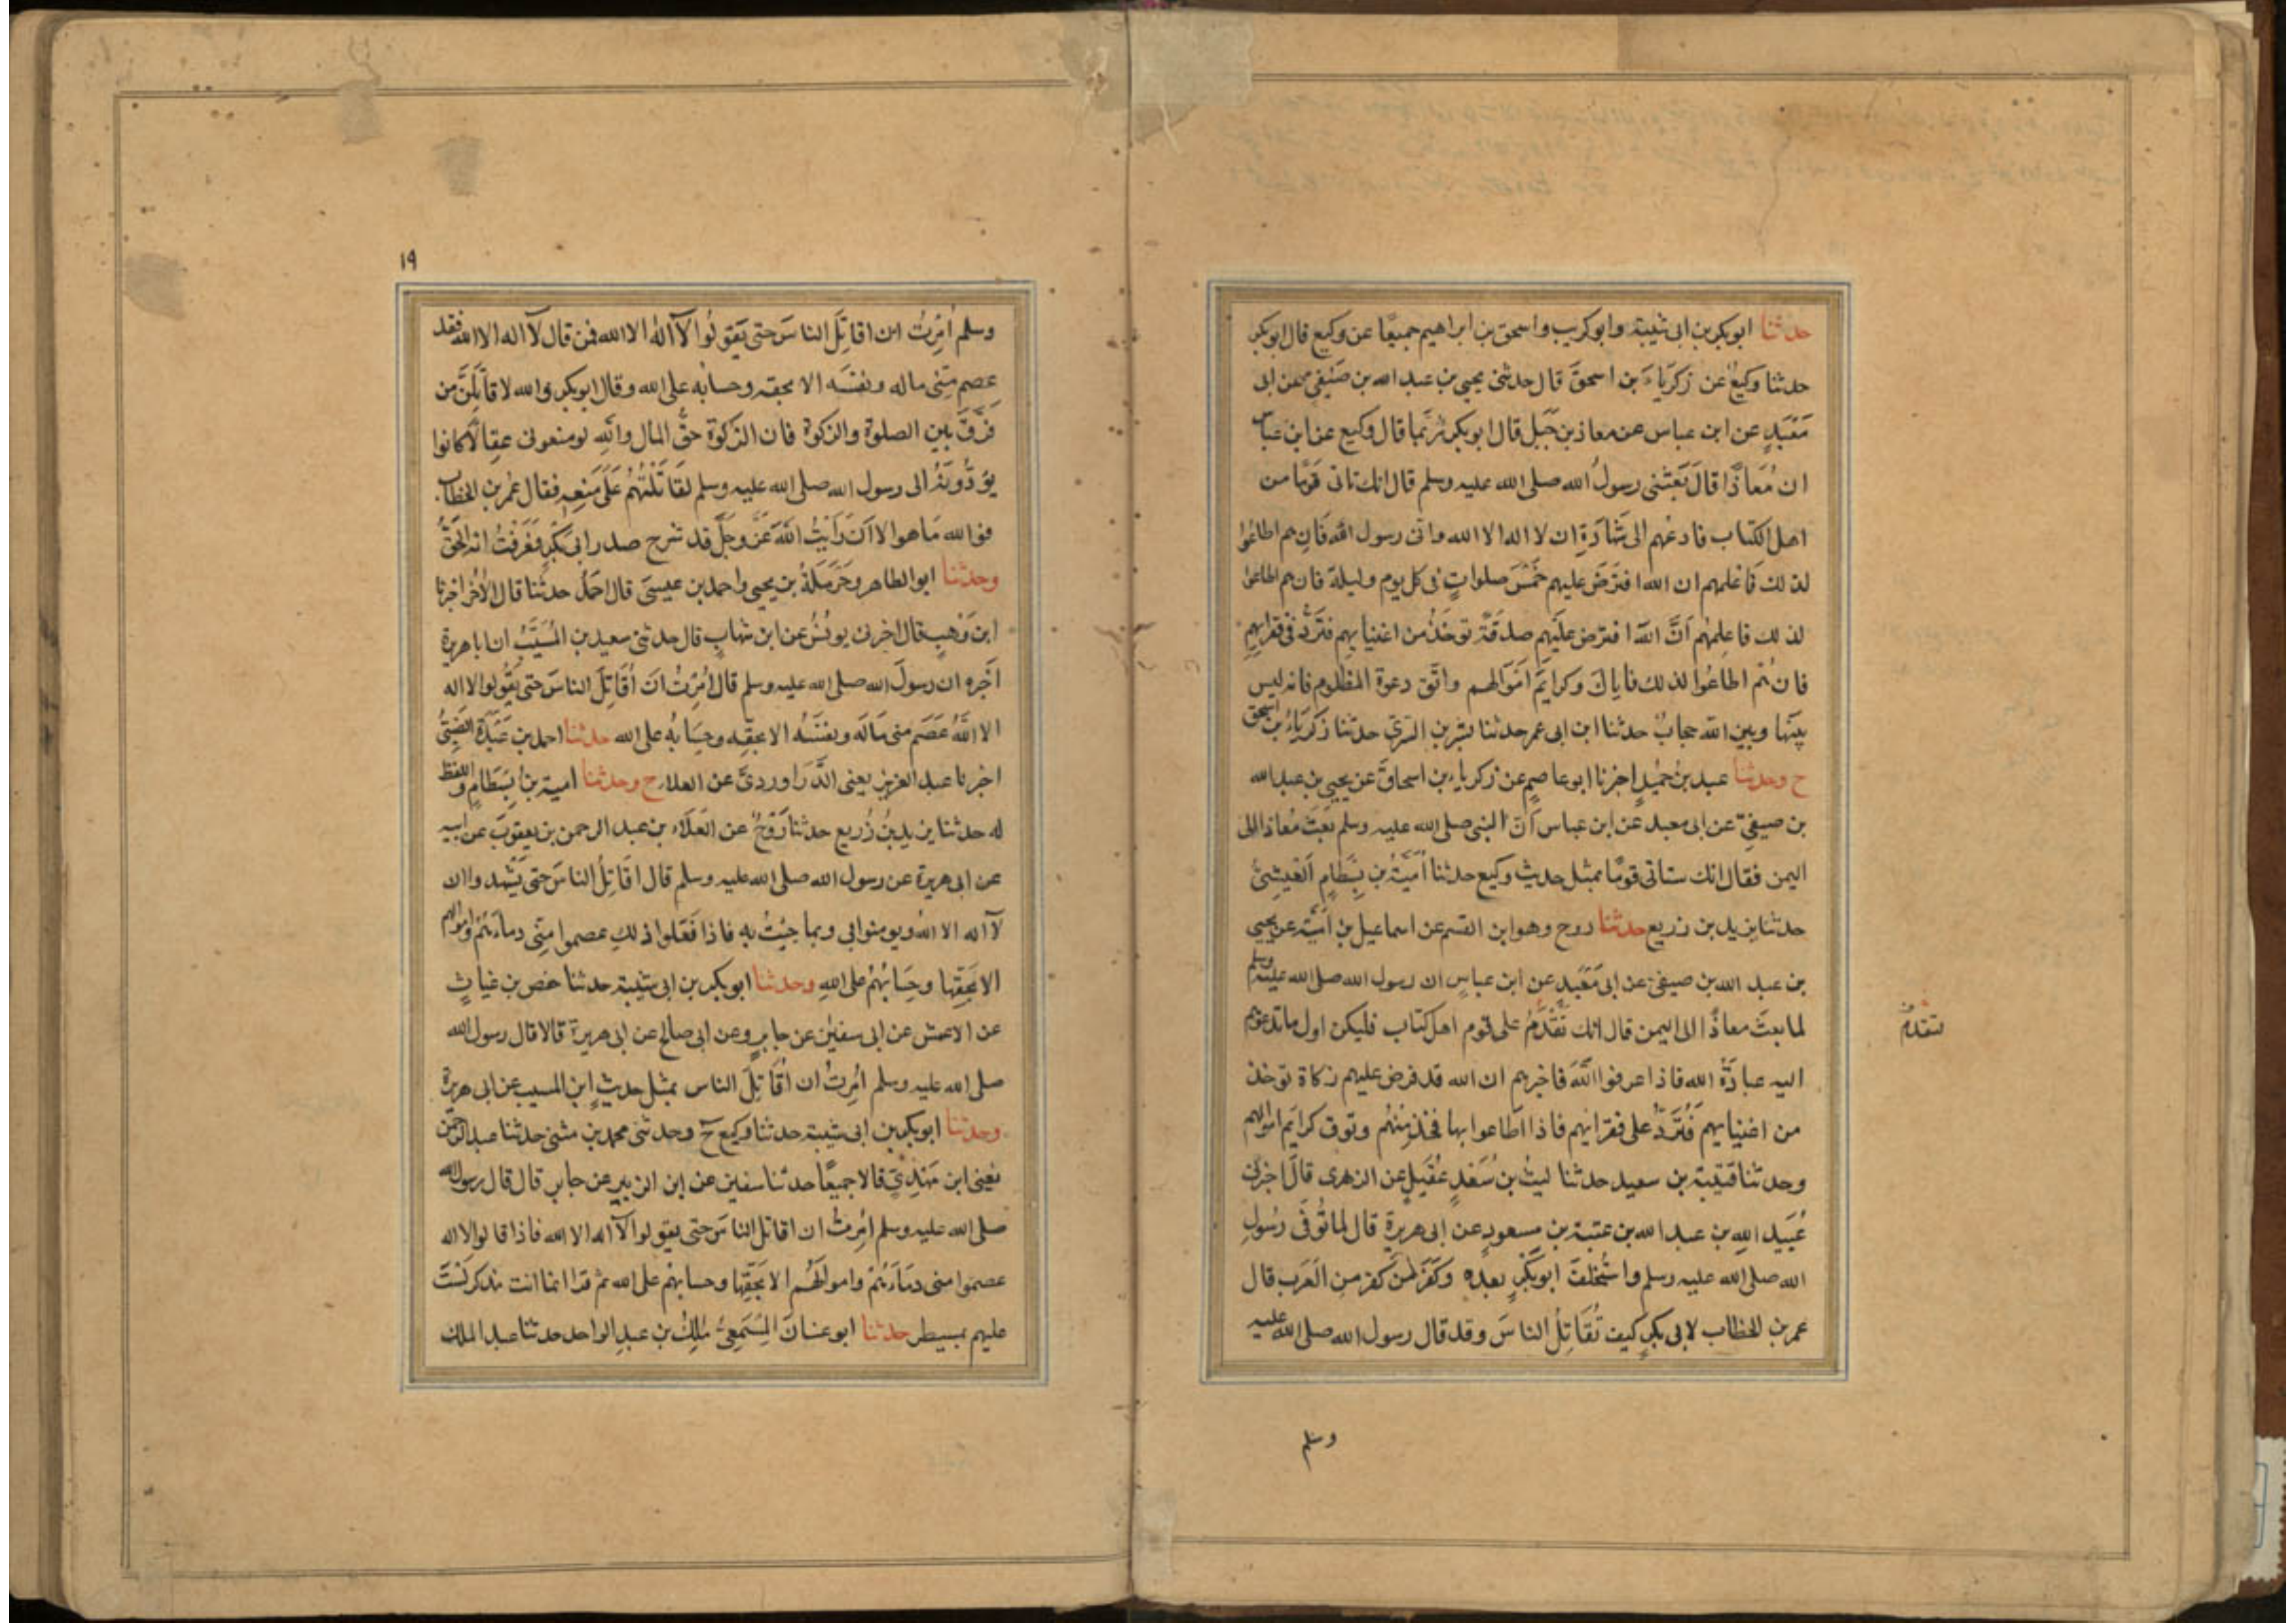 حدثنا ابوبكر بن ابى شيبة وابوكريب واسحق بن ابراهيم جميعًا عن وكيع قال ابوبكر
حدثنا وكيعٌ عن زكرياءَ بن اسحقَ قال حدثنى يحيى بن عبد الله بن صَيْفِى عن ابى
مَعْبَدٍ عن ابن عباس عن معاذ بن جَبَل قال ابوبكر رُبَّمَا قال وكيع عن ابن عباس
ان مُعَاذًا قالَ بَعَثَنى رسولُ الله صلى الله عليه وسلم قال انك تاتى قومًا من
اهل الكتاب فادعُهم الى شَهَادَةِ ان لا اله الا الله وانى رسول الله فَاِن هم اطاعُوا
لذلك فَاعْلمهم ان الله افتَرَضَ عليهم خَمْسَ صلواتٍ فى كل يوم وليلة فان هم اطاعوا
لذلك فاعلِمهُم اَنَّ اللهَ افترض عَلَيهِم صدقَةً توخَذُ من اغنيايهِم فتُرَدُّ فى فقرايهِم
فان هُم اطاعُوا لذلك فاياكَ وكرايَم اَمْوَالهم واتَّقِ دعوة المظلوم فانه ليس
بينَها وبين الله حجابٌ حدثنا ابن ابى عمر حدثنا بشر بن السَّرِى حدثنا زكرياءُ بن اسحق
ح وحدثنا عبد بن حُمَيْدٍ اخبرنا ابوعاصمٍ عن زكرياء بن اسحاقَ عن يحيى بن عبد الله
بن صيفىّ عن ابى معبد عن ابن عباس اَنّ النبى صلى الله عليه وسلم بَعَثَ مُعاذا الى
اليمن فقال انك ستاتى قومًا بمثل حديث وكيع حدثنا اُمَيَّةُ بن بِسْطَامٍ اَلعَيْشِىُّ
حدثنا يزيد بن زريع حدثنا روح وهو ابن القسم عن اسماعيل بن اُمَيَّةَ عن يحيى
بن عبد الله بن صيفى عن ابى مَعْبَد عن ابن عباسٍ ان رسول الله صلى الله عليه وسلم
لما بعثَ معاذًا الى اليمن قال انك تَقْدَمُ على قوم اهل كتاب فليكن اول ما تدعوهم
لتقدمُ
اليه عبادَةُ الله فاذا عرفوا اللّهَ فاخبرهم ان الله قد فرض عليهم زكاة توخذ
من اغنيايهم فَتُرَدُّ على فقرايهم فاذا اطاعوا بها فخُذْ مِنْهُم وتوق كرايَم اموالهم
وحدثنا قتيبة بن سعيد حدثنا ليثُ بن سَعْدٍ عُقَيلٍ عن الزهرى قالَ اخبرنى
عُبَيد اللهِ بن عبد الله بن عتبة بن مسعودٍ عن ابى هريرة قال لما تُوُفّى رسُولِ
الله صلى الله عليه وسلم واسْتُخْلِفَ ابوبَكْرٍ بعده وكَفَرَ مَنْ كفر مِنِ الْعَرب قال
عمر بن الخطاب لابى بكرٍ كيف تُقَاتِلُ الناسَ وقد قال رسول الله صلى الله عليه
وسلم
١٩
وسلم اُمِرتُ ان اقاتِلَ الناسَ حتى يَقولُوا لآ اله الا الله فمن قال لآ اله الا الله فقد
عصم مِنّى ماله ونفسَه الا بحقه وحسابُه على الله وقال ابوبكر والله لاقاتِلَنَّ من
فَرَّقَ بين الصلوة والزكوة فان الزكوة حقُّ المال واللهِ لو منعونى عِقالاً كانوا
يُؤدُّونَهُ الى رسول الله صلى الله عليه وسلم لقَاتَلْتُهُمْ عَلَى مَنعِهِ فقال عُمر بن الخطاب
فوالله مَاهو الا اَنْ رَاَيْتُ اللهَ عَزَّ وجَلَّ قد شرح صدر ابى بَكْرٍ فَعَرَفْتُ انه الحَقُّ
وحدثنا ابوالطاهر وحَرْمَلَةُ بن يحيى واحمد بن عيسَى قال احمَدُ حدثنا قال الاخر اخبرنا
ابن وَهبٍ قال اخبرنى يونُسُ عن ابن شهابٍ قال حدثنى سعيد بن المُسَيَّبُ ان اباهريرة
اَخبره ان رسولَ الله صلى الله عليه وسلم قال اُمِرْتُ اَنْ اُقَاتِلَ الناسَ حتى يَقُولوا لا اله
الا اللّهُ عَصَم منى مَالَه ونفسَه الا بحقِه وحِسَابُه على الله حدثنا احمد بن عَبْدَةَ الضَّبِّىُّ
اخبرنا عبد العزيز يعنى الدَّرَاوردىَّ عن العلاء ح وحدثنا امية بن بِسْطَامٍ واللفظ
له حدثنا يزيد بنُ زُريع حدثنا رَوْحٌ عن العَلَاء بن عبد الرحمن بن يعقوبَ عن ابيه
عن ابى هريرة عن رسول الله صلى الله عليه وسلم قال اقَاتِلُ الناسَ حتى يَشهدوا ان
لآ اله الا الله ويومنوا بى وبما جِيْتُ به فاذا فَعَلوا ذلكِ عصموا مِنّى دماءَهُمْ واموالهم
الا بحَقِها وحِسَابُهُمْ على اللهِ وحدثنا ابوبكر بن ابى شيبة حدثنا حفص بن غياثٍ
عن الاعمش عن ابى سفين عن جابرٍ وعن ابى صالح عن ابى هريرة قالا قال رسول الله
صلى الله عليه وسلم اُمِرتُ ان اُقَاتِلَ الناس بمثل حديثِ ابن المسيب عن ابى هريرة
وحدثنا ابوبكر بن ابى شيبة حدثنا وكيع ح وحدثنى محمد بن مثنى حدثنا عبد الرحمن
يعنى ابن مَهْدِىٍّ قالا جميعًا حدثنا سفين عن ابن الزبير عن جابر قال قال رسول الله
صلى الله عليه وسلم اُمِرتُ ان اقاتل الناسَ حتى يقولوا لآ اله الا الله فاذا قالوا لا اله
عصموا منى دمَاءَهُمْ وامواَلَهُم الا بحَقِّها وحسابهُم على الله ثم قرا انما انت مذكر لَسْتَ
عليهم بمسيطر حدثنا ابوغسانَ المِسْمَعِىُّ مٰلِكُ بن عبدِ الواحد حدثنا عبد الملك